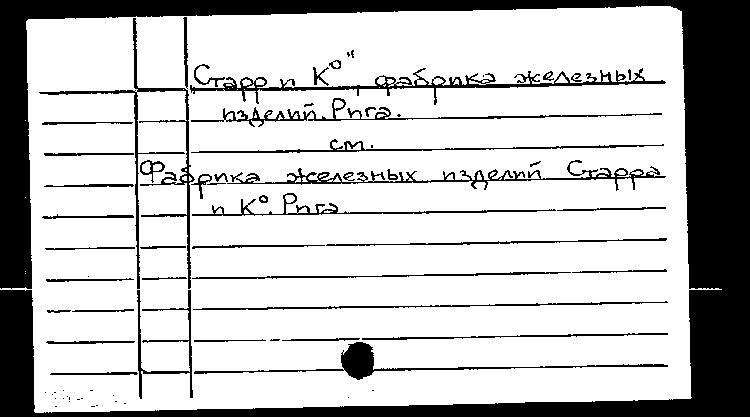 Старр и К°", фабрика железных
изделий. Рига.
см.
Фабрика железных изделий Старра
и К°. Рига.